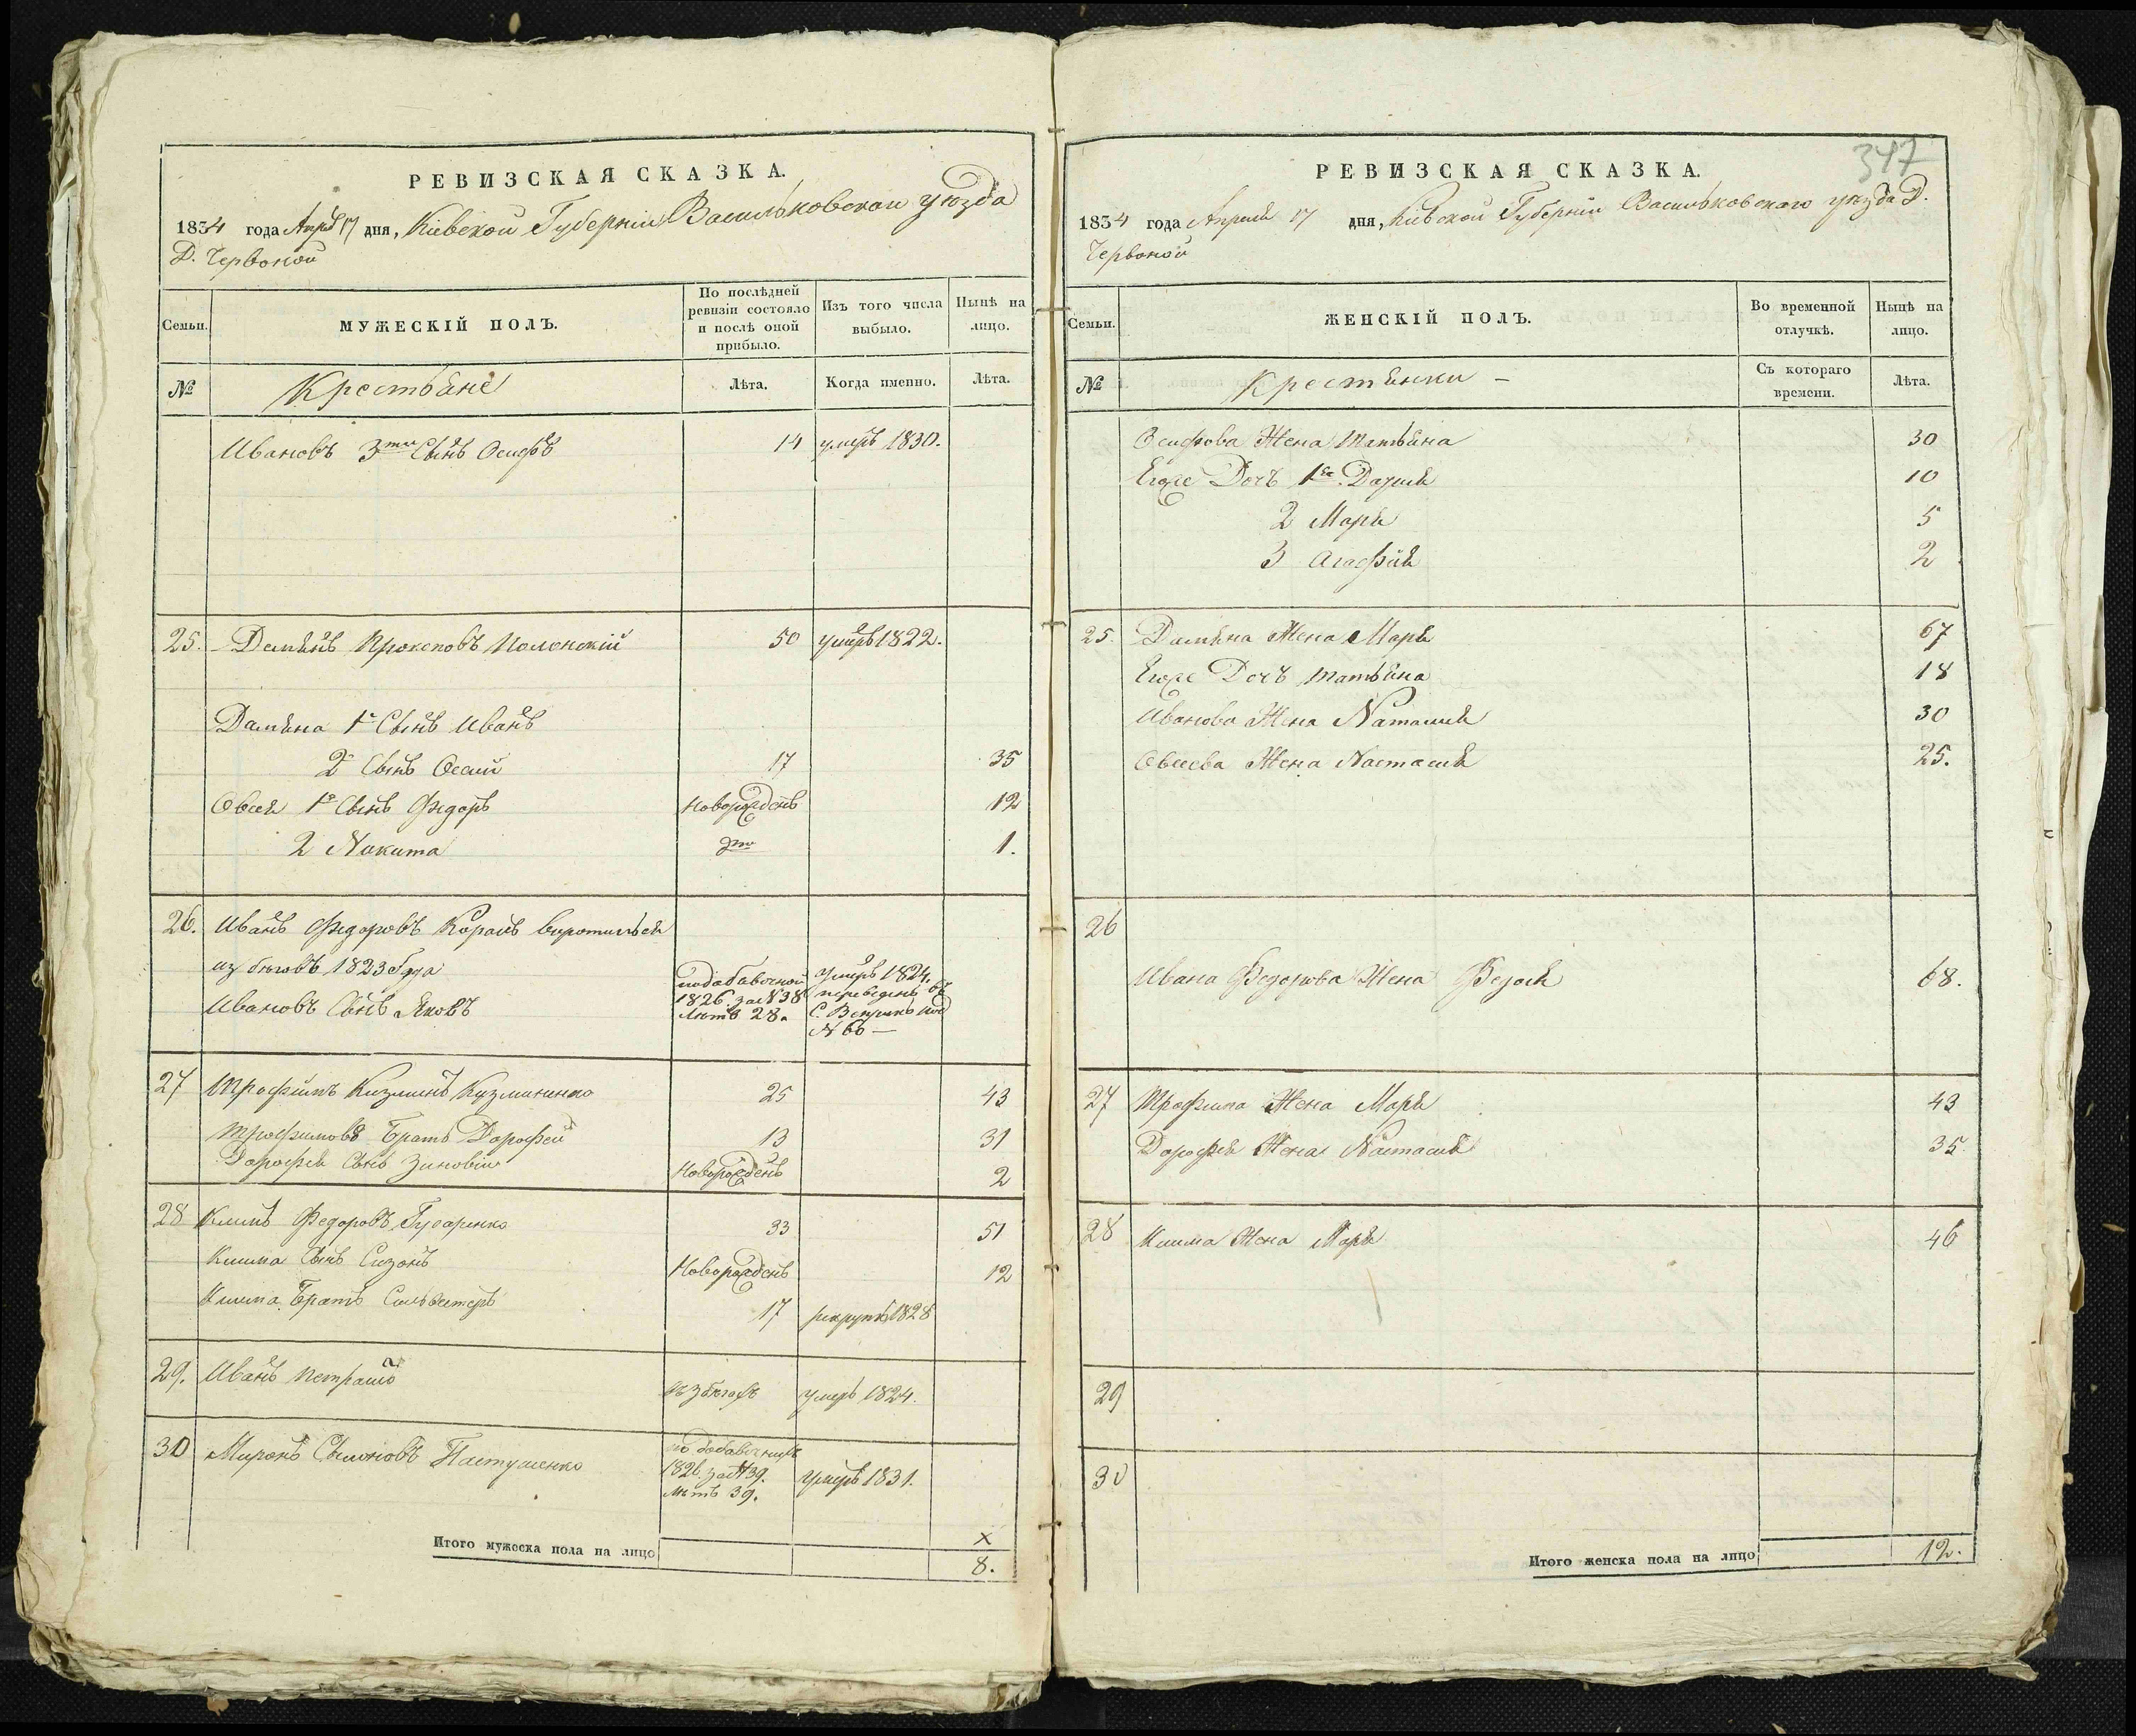 РЕВИЗСКАЯ СКАЗКА.
1834 года Апрѣ 17 дня, Кіевской Губерніи Васильковскаи уюзда
Д. Червоной
Семьи.
МУЖЕСКІЙ ПОЛЪ.
По послѣдней
ревизіи состояло
и послѣ оной
прибыло.
Изъ того числа
выбыло.
Нынѣ на
лицо.
№
Крестьяне
Лѣта.
Когда именно.
Лѣта.
Ивановъ 3ти Сынъ Осифъ 14 умеръ 1830.
25. Демянъ Прокоповъ Полонскій 50 умеръ 1822.
Дамяна 1й Сынъ Иванъ
2й Сынъ Осеий 17 35
Овсея 1й Сынъ Федоръ Новорожденъ 12
2 Никита дто 1.
26. Иванъ Федоровъ Коралъ
из бѣговъ 1823 Года умеръ 1824.
Ивановъ Сынъ Яковъ
подабавочной
1826. за №38
Лѣтъ 28.
переведенъ въ
С. под
№ 66 —
27 Трофимъ Кизминъ Кузминенко 25 43
Трофимовъ Братъ Дорофей 13 31
Дорофея Сынъ Зиновій Новорожденъ 2
28 Климъ Федоровъ Гусаренко 33 51
Клима Сынъ Сизонъ Новорожденъ 12
Клима Братъ Сильвестеръ 17 рекрутъ 1828
29. Иванъ Петрашъ умеръ 1824.
30 Миронъ Семоновъ Пастушенко
по добавочной
1826. за №39.
Лѣтъ 39.
умеръ 1831.
Итого мужеска пола на лицо
х
8.
347
РЕВИЗСКАЯ СКАЗКА.
1834 года Апреля 17 дня, Кіевской Губерніи Васильковского уезда Д.
Червоной
Семьи.
ЖЕНСКІЙ ПОЛЪ.
Во временной
отлучкѣ.
Нынѣ на
лицо.
№
Крестянки —
Съ котораго
времени.
Лѣта.
Осифова Жена Татьяна 30
Егоже Дочь 1я Дария 10
2 Маря 5
3 Агафия 2
25. Дамяна Жена Маря 67
Егоже Дочь Татьяна 18
Иванова Жена Наталия 30
Овсеева Жена Настасия 25.
26
Ивана Федорова Жена Федося 68.
27 Трофима Жена Маря 43
Дорофея Жена Настасия 35
28 Клима Жена Маря 46
29
30
Итого женска пола на лицо 12.